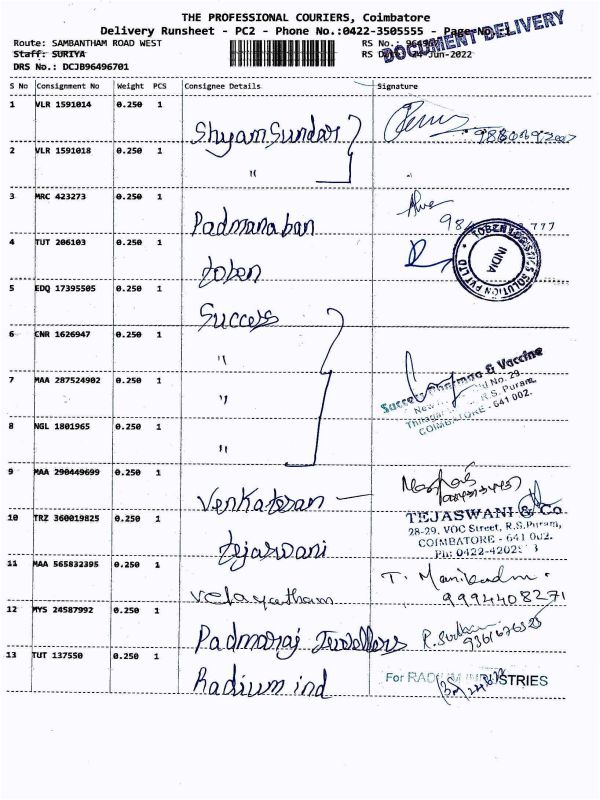 THE PROFESSIONAL COURIERS, Coimbatore
Delivery Runsheet - PC2 - Phone No.:0422-3505555 - Page No.:1
DOCUMENT DELIVERY
Route: SAMBANTHAM ROAD WEST
RS No.:
Staff: SURIYA
RS Date: 24-Jun-2022
DRS No.: DCJB96496701
S No Consignment No Weight PCS Consignee Details Signature
1 VLR 1591014 0.250 1 Shyam Sundar
2 VLR 1591018 0.250 1 "
3 MRC 423273 0.250 1 Padmanaban
4 TUT 206103 0.250 1 toben
TOBEN LOGISTICS SOLUTION PVT LTD
INDIA
5 EDQ 17395505 0.250 1 Success
6 CNR 1626947 0.250 1 "
7 MAA 287524902 0.250 1 "
Success Pharma & Vaccine
No. 29,
R.S. Puram,
COIMBATORE - 641 002.
8 NGL 1801965 0.250 1 "
9 MAA 290449699 0.250 1 Venkatesan
10 TRZ 360019825 0.250 1 tejaswani
TEJASWANI & Co
28-29, VOC Street, R.S.Puram,
COIMBATORE - 641 002.
Ph: 0422-4202
11 MAA 565832395 0.250 1 velayutham
9994408271
12 MYS 24587992 0.250 1 Padmaraj Jewellers
13 TUT 137550 0.250 1 Radium ind
For RADIUM INDUSTRIES